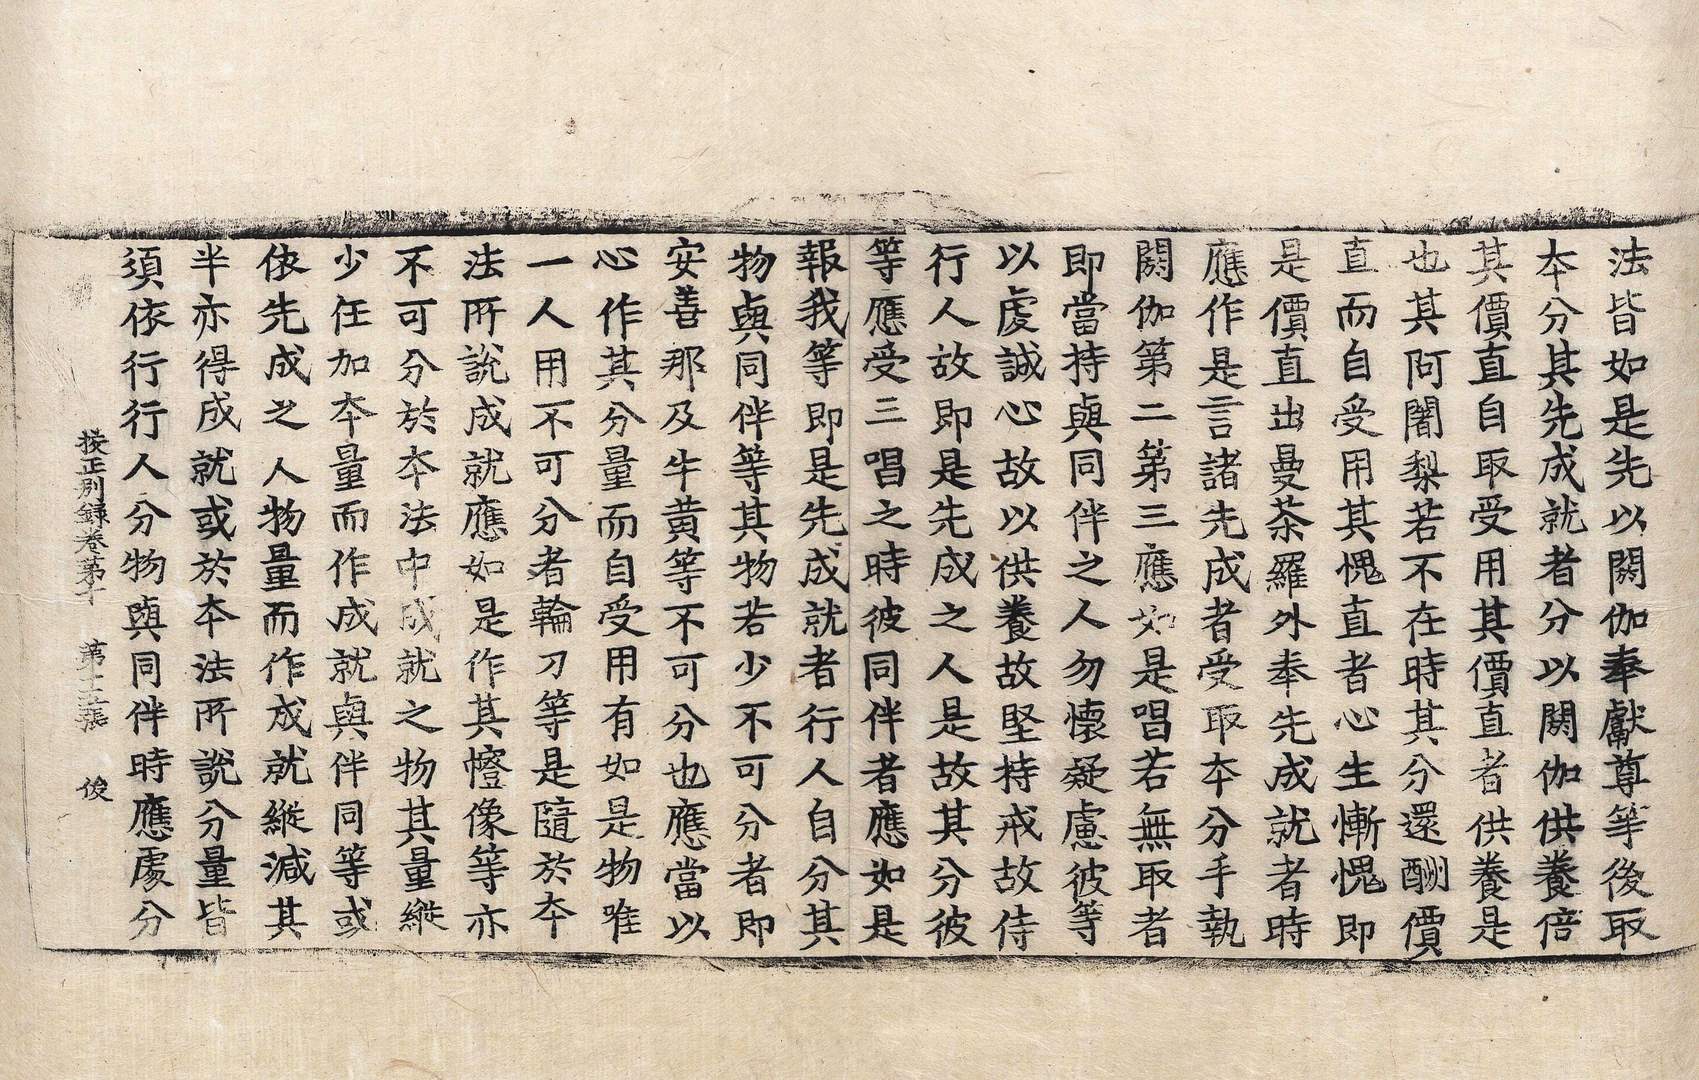 法皆如是先以閼伽奉獻尊等後取
本分其先成就者分以閼伽供養倍
其價直自取受用其價直者供養是
也其阿闍梨若不在時其分還酬價
直而自受用其愧直者心生慚愧即
是價直出曼茶羅外奉先成就者時
應作是言諸先成者受取本分手執
閼伽第二第三應如是唱若無取者
即當持與同伴之人勿懷疑慮彼等
以虔誠心故以供養故堅持戒故侍
行人故即是先成之人是故其分彼
等應受三唱之時彼同伴者應如是
報我等即是先成就者行人自分其
物與同伴等其物若少不可分者即
安善那及牛黃等不可分也應當以
心作其分量而自受用有如是物唯
一人用不可分者輪刀等是隨於本
法所說成就應如是作其幢像等亦
不可分於本法中成就之物其量縱
少任加本量而作成就與伴同等或
依先成之人物量而作成就縱減其
半亦得成就或於本法所說分量皆
須依行行人分物與同伴時應處分
挍正別錄卷第十　第十五張　俊